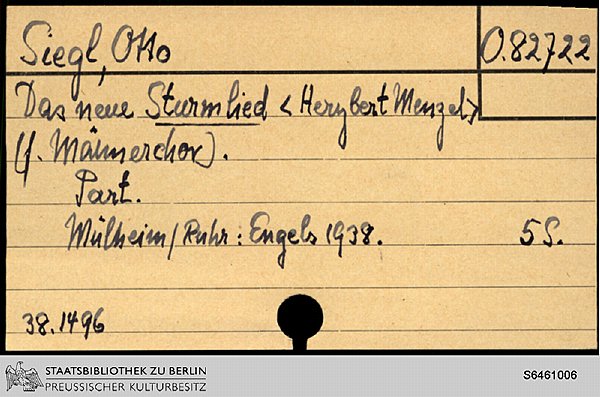 Siegl, Otto
O.82722
Das neue Sturmlied <Herybert Menzel>
(f. Männerchor).
Part.
Mülheim/Ruhr: Engels 1938.
5 S.
38.1496
STAATSBIBLIOTHEK ZU BERLIN
PREUSSISCHER KULTURBESITZ
S6461006